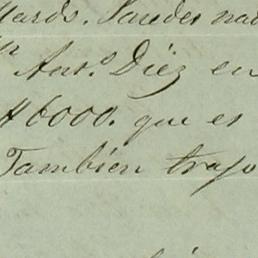 Yards. Paredes nad
Anto. Diéz en
#6000. que es
Tambien trajo